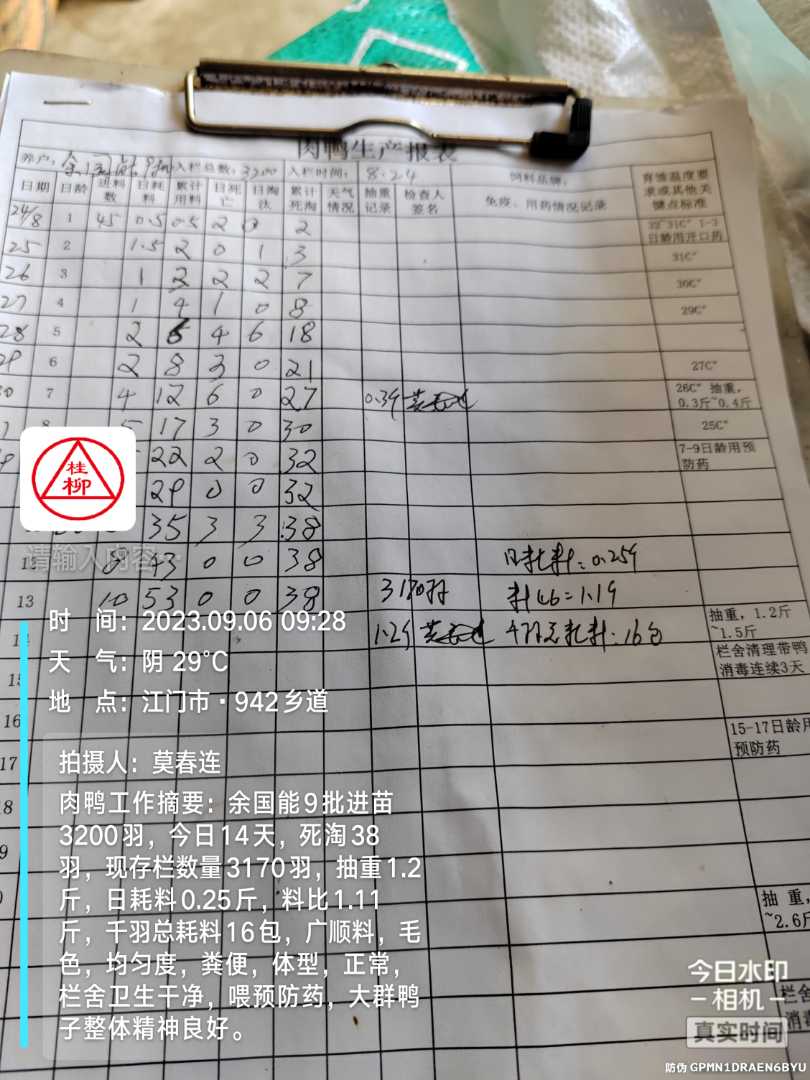 肉鸭生产报表
养户: 余国能9批 入栏总数: 3200 入栏时间: 8.24 饲料品牌:
日期 日龄 进料数 日耗料 累计用料 日死亡 日淘汰 累计死淘 天气情况 抽重记录 检查人签名 免疫、用药情况记录 育雏温度要求或其他关键点标准
24/8 1 45 0.5 0.5 2 0 2 32~31C° 1-3日龄用开口药
25 2 1.5 2 0 1 3 31C°
26 3 1 2 2 7 30C°
27 4 1 4 1 0 8 29C°
28 5 2 6 4 6 18
29 6 2 8 3 0 21 27C°
30 7 4 12 6 0 27 0.39 26C° 抽重,0.3斤~0.4斤
8 5 17 3 0 30 25C°
22 2 0 32 7-9日龄用预防药
29 0 0 32
35 3 3 38
12 8 43 0 0 38 日耗料: 0.25斤
13 10 53 0 0 38 3170羽 料比=1.11
14 1.2斤 千羽总耗料: 16包 抽重, 1.2斤~1.5斤
15 栏舍清理带鸭消毒连续3天
16 15-17日龄用预防药
17
18
抽重,
~2.6斤
桂柳
请输入内容
时 间: 2023.09.06 09:28
天 气: 阴 29°C
地 点: 江门市·942乡道
拍摄人: 莫春连
肉鸭工作摘要: 余国能9批进苗
3200羽, 今日14天, 死淘38
羽, 现存栏数量3170羽, 抽重1.2
斤, 日耗料0.25斤, 料比1.11
斤, 千羽总耗料16包, 广顺料, 毛
色, 均匀度, 粪便, 体型, 正常,
栏舍卫生干净, 喂预防药, 大群鸭
子整体精神良好。
今日水印
相机
真实时间
防伪 GPMN1DRAEN6BYU